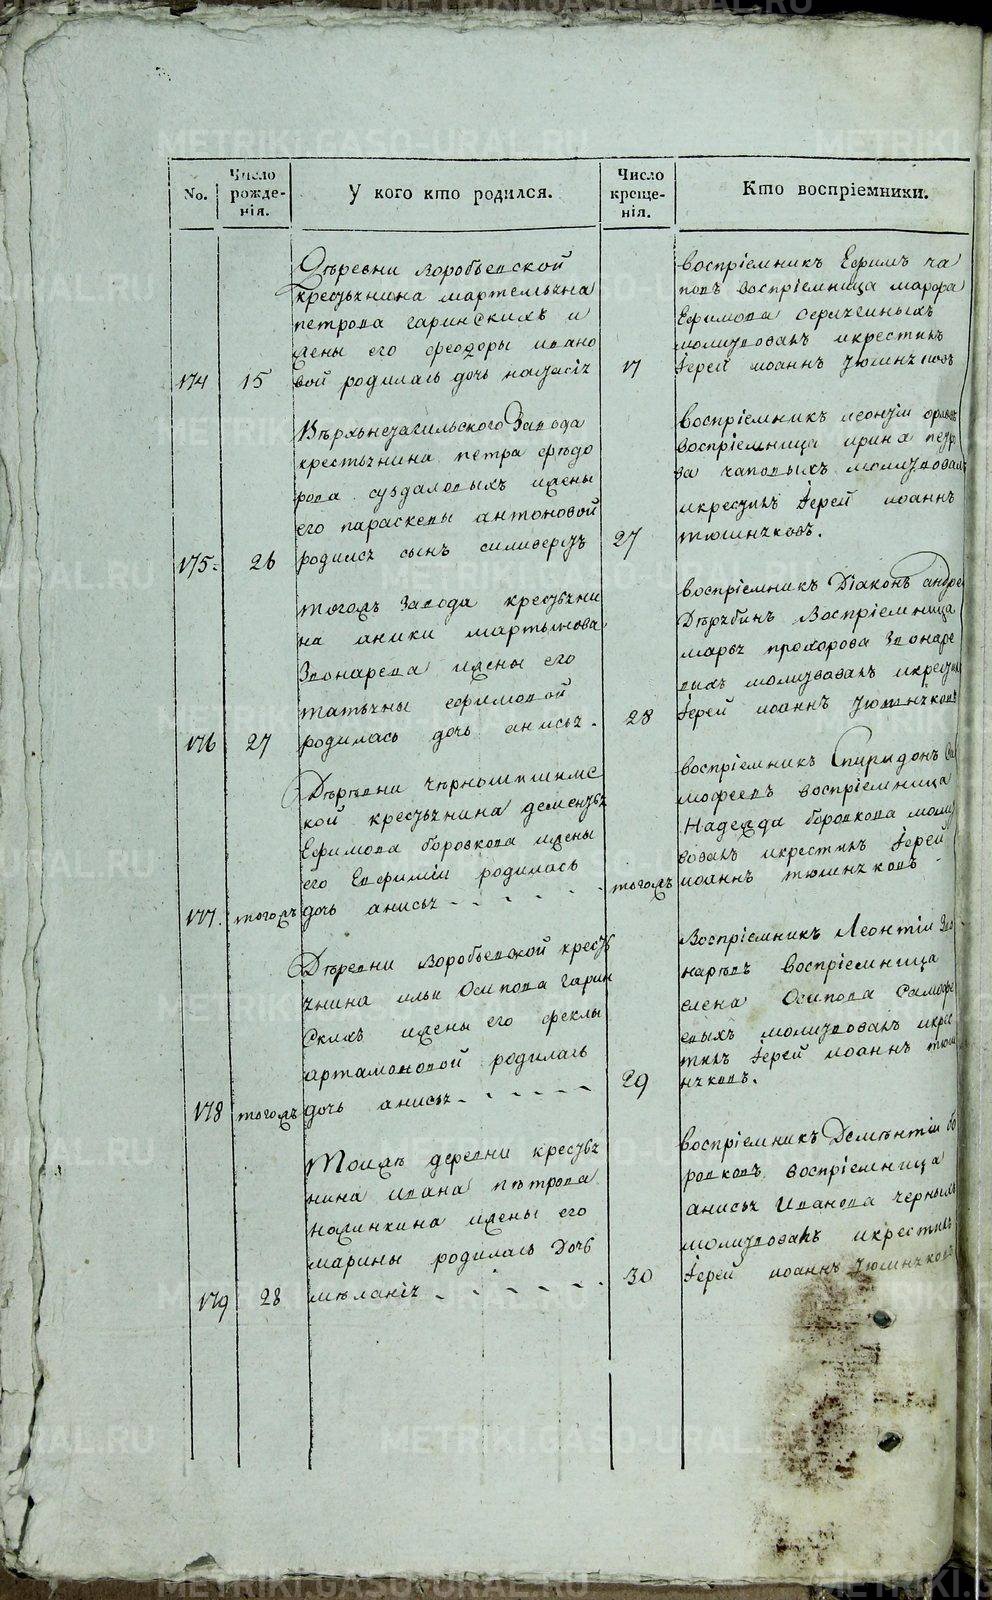 No.
Число
рожде-
нія.
У кого кто родился.
Число
креще-
нія.
Кто воспріемники.
174
15
Дѣревни воробьевской
крестьянина мартемьяна
петрова гаринскихъ и
жены его феодоры ивано
вой родилась дочь настасія
17
воспріемникъ Ефимъ ча
повъ воспріемница марфа
Ефимова
молитвовалъ икрестилъ
Іерей иоаннъ тюшняковъ
175
26
Вѣрхънетагильского Завода
крестьянина петра фѣдо
рова суздаловыхъ жены
его параскевы антоновой
родился сынъ силиверстъ
27
воспріемникъ леонтіи
воспріемница ирина петр
ва чаповыхъ молитвовалъ
икрестилъ Іерей иоаннъ
тюшняковъ.
176
27
тогожъ Завода крестьяни
на аники мартынова
Звонарева жены его
татьяны ефимовой
родилась дочь анисья -
28
воспріемникъ Діаконъ андре
Дѣрябинъ Воспріемница
марья прохорова Звонаре
выхъ молитвовалъ икрести
Іерей иоаннъ тюшняковъ
177.
тогожъ
Дѣрѣвни чѣрношишимс
кой крестьянина дементья
Ефимова боровкова жены
его Евфиміи родилась
дочь анисья - - - - -
тогожъ
воспріемникъ Спиридонъ
мофеевъ воспріемница
Надежда боровкова молит
вовалъ икрестилъ Іерей
иоаннъ тюшняковъ
178
тогожъ
Дѣревни воробьевской кресть
янина ильи Осипова гарин
скихъ жены его феклы
артамоновой родилась
дочь анисья - - - - -
29
Воспріемникъ Леонтіи Зво
наревъ воспріемница
елена Осипова Самофе
евыхъ молитвовалъ икрес
тилъ Іерей иоаннъ тюш
няковъ.
179
28
тоижъ деревни кресть
нина ивана пѣтрова
калинкина жены его
марины родилась дочь
мѣланія - - - - -
30
воспріемникъ Дементіи бо
ровковъ воспріемница
анисья Иванова черныхъ
молитвовалъ икрестилъ
Іерей иоаннъ тюшняковъ
METRIKI.GASO-URAL.RU